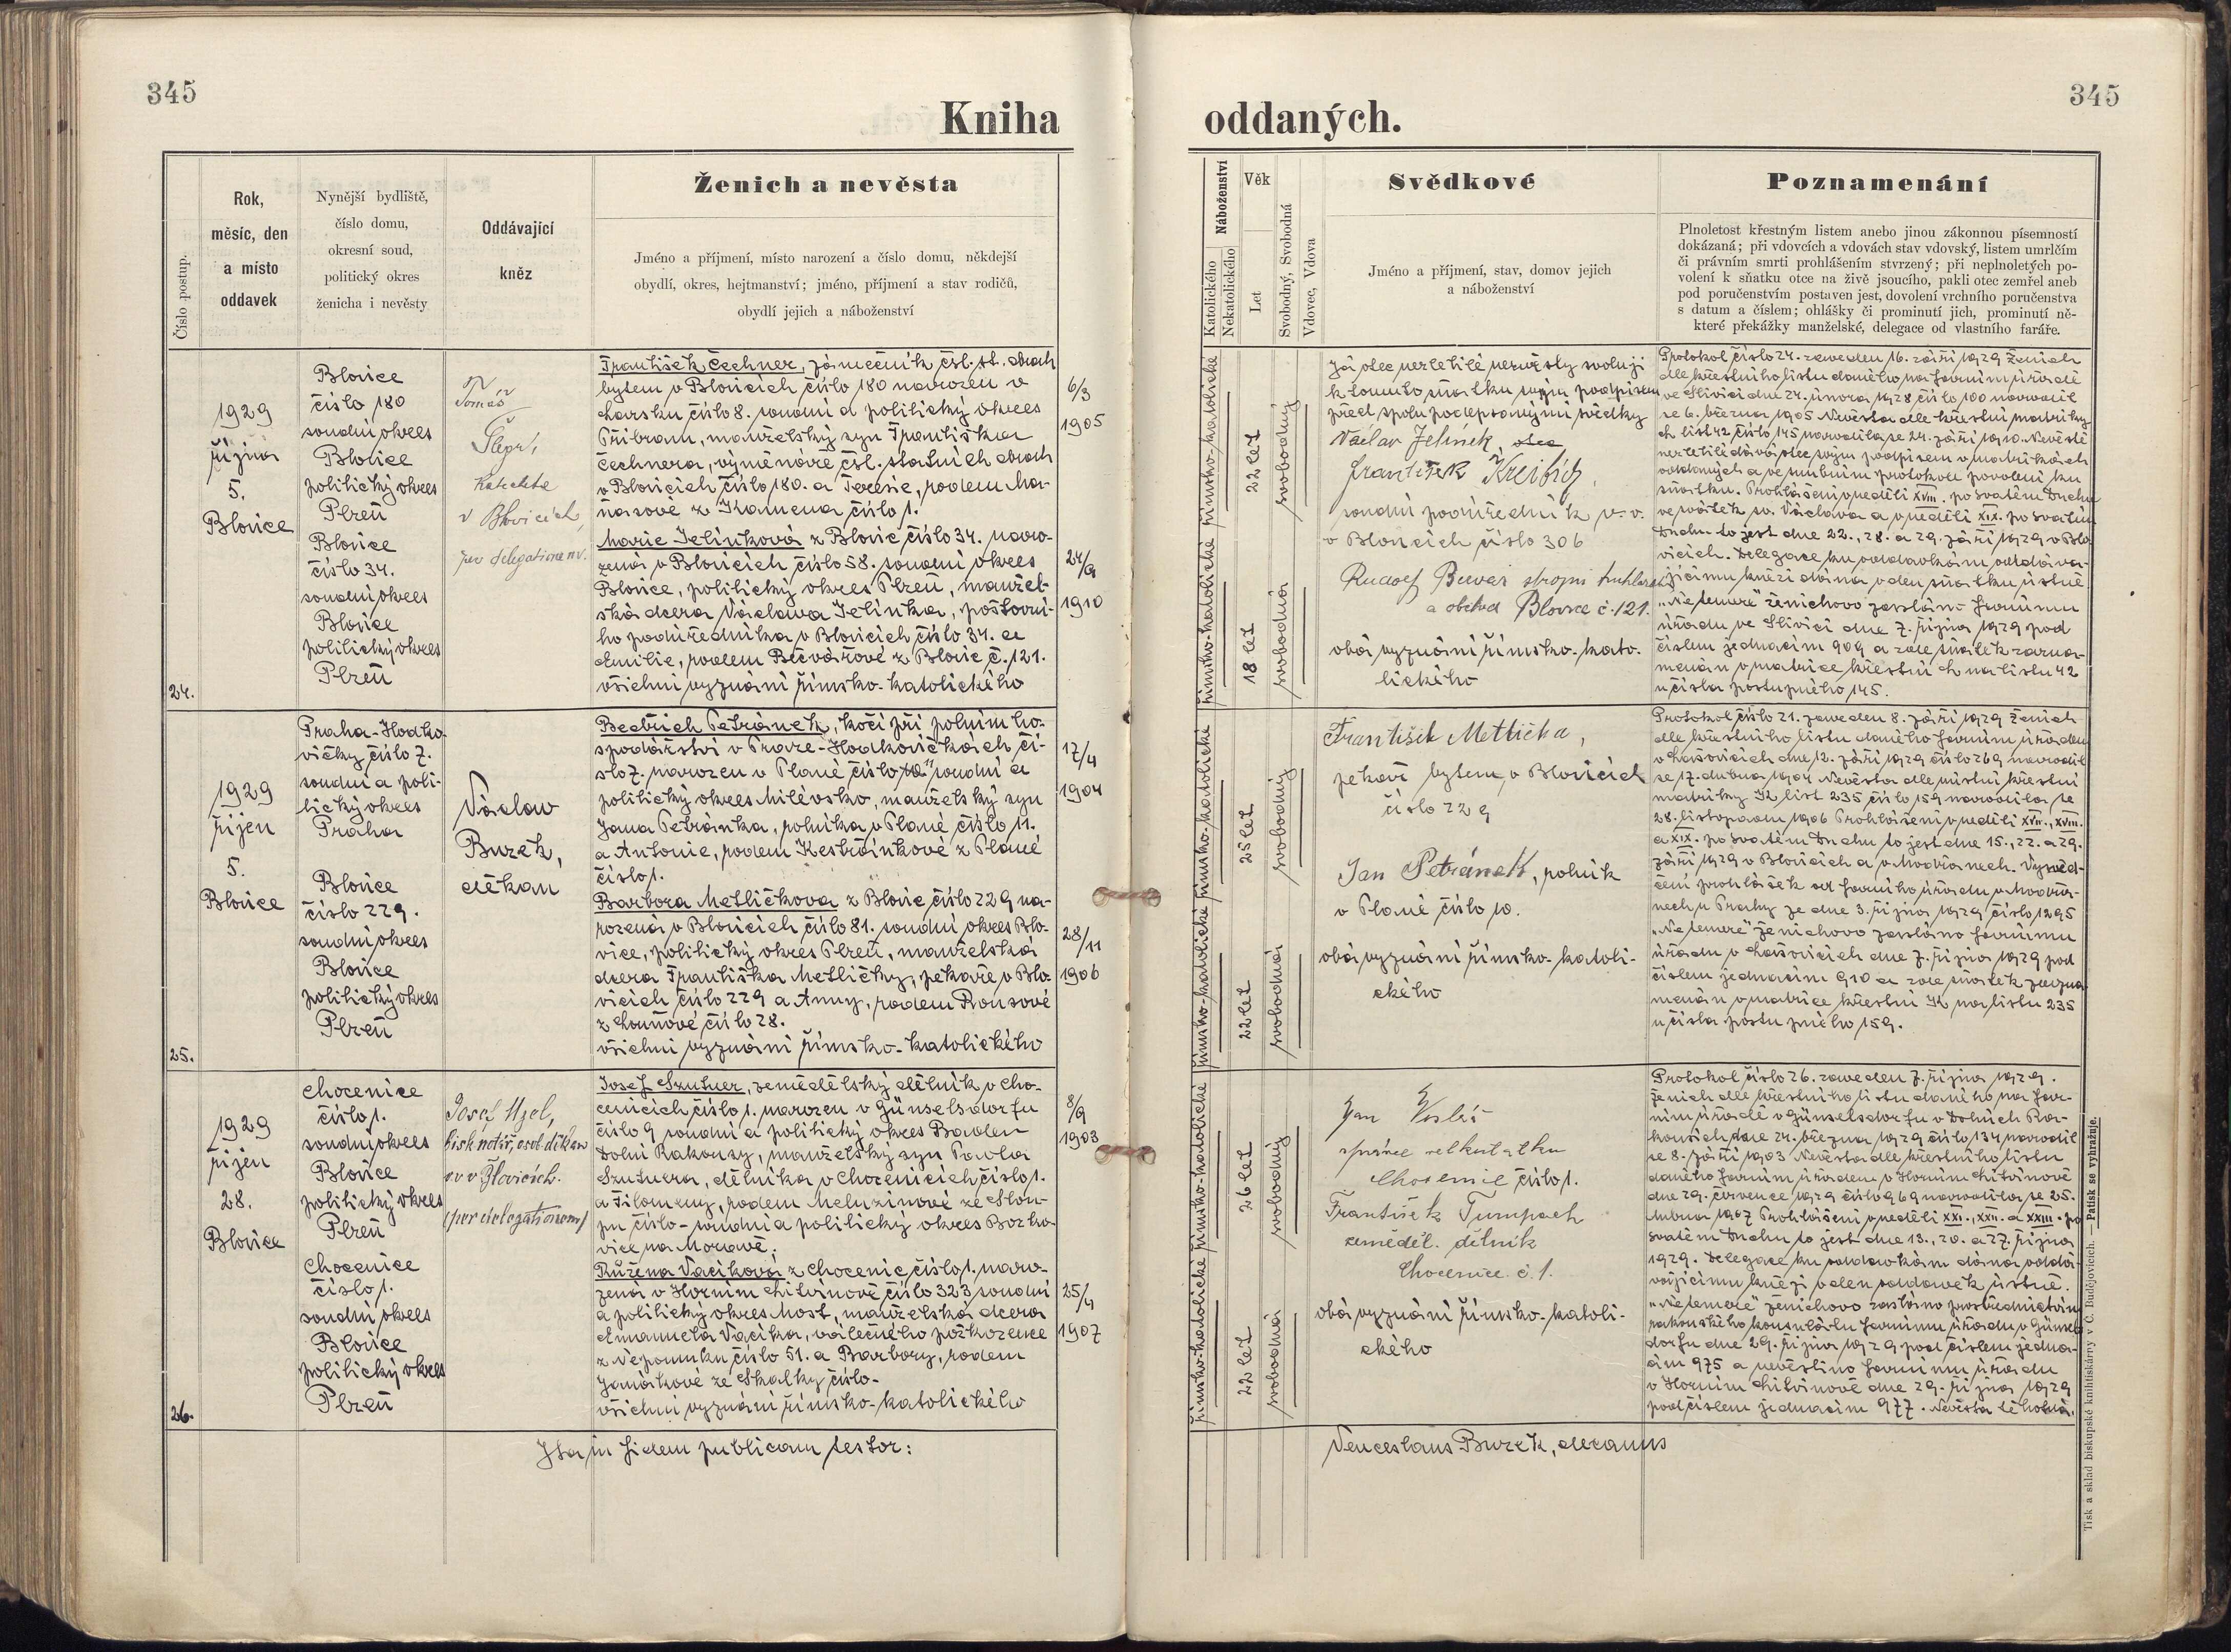 345
345
Kniha
oddaných.
Číslo postup.
Rok,
měsíc, den
a místo
oddavek
Nynější bydliště,
číslo domu,
okresní soud,
politický okres
ženicha i nevěsty
Oddávající
kněz
Ženich a nevěsta
Jméno a příjmení, místo narození a číslo domu, někdejší
obydlí, okres, hejtmanství; jméno, příjmení a stav rodičů,
obydlí jejich a náboženství
24.
1929
října
5.
Blovice
Blovice
číslo 180
soudní okres
Blovice
politický okres
Plzeň
Blovice
číslo 34.
soudní okres
Blovice
politický okres
Plzeň
Tomáš
Šlepr,
katecheta
v Blovicích,
František Čechner, zámečník čsl. st. drah
bytem v Blovicích číslo 180 narozen v
číslo 8. soudní a politický okres
Příbram, manželský syn Františka
Čechnera, výměnáře čsl. státních drah
v Blovicích číslo 180. a Terezie, rodem Ma-
ňasové z Kamena číslo 1.
Marie Jelínková z Blovic číslo 34. naro-
zená v Blovicích číslo 58. soudní okres
Blovice, politický okres Plzeň, manžel-
ská dcera Václava Jelínka, poštovní-
ho podúředníka v Blovicích číslo 34. a
Emilie, rodem Bečvářové z Blovic č. 121.
všichni vyznání římsko-katolického
6/3
1905
24/9
1910
25.
1929
říjen
5.
Blovice
Praha-Hodko-
vičky číslo 7.
soudní a poli-
tický okres
Praha
Blovice
číslo 229.
soudní okres
Blovice
politický okres
Plzeň
Václav
Burek,
děkan
Bedřich Petránek, kočí při polním ho-
spodářství v Praze-Hodkovičkách čí-
slo 7. narozen v Plané číslo soudní a
politický okres Milévsko, manželský syn
Jana Petránka, rolníka v Plané číslo 11.
a Antonie, rodem Kestřánkové z Plané
číslo 1.
Barbora Metličkova z Blovic číslo 229 na-
rozená v Blovicích číslo 81. soudní okres Blo-
vice, politický okres Plzeň, manželská
dcera Františka Metličky, pekaře v Blo-
vicích číslo 229 a Anny, rodem Rousové
z Louňové číslo 28.
všichni vyznání římsko-katolického
17/4
1904
28/11
1906
26.
1929
říjen
28.
Blovice
Chocenice
číslo 1.
soudní okres
Blovice
politický okres
Plzeň
Chocenice
číslo 1.
soudní okres
Blovice
politický okres
Plzeň
Josef Uzel,
bisk. notář, osob. děkan
v Blovicích.
(per delegationem)
Josef Szutner, zemědělský dělník v Cho-
cenicích číslo 1. narozen v Günselsdorfu
číslo 9 soudní a politický okres Baden
Dolní Rakousy, manželský syn Pavla
Szutnera, dělníka v Chocenicích číslo 1.
a Filomeny, rodem Meluzinové ze Slou-
pu číslo - soudní a politický okres Bosko-
vice na Moravě.
Růžena Vacíková z Chocenic číslo 1. naro-
zená v Horním Litvínově číslo 323 soudní
a politický okres Most, manželská dcera
Emanuela Vacíka, válečného poškozence
z Nepomuku číslo 51. a Barbory, rodem
Janákové ze Skalky číslo -
všichni vyznání římsko-katolického
8/9
1903
25/4
1907
Ita in fidem publicam testor:
Náboženství
Katolického
Nekatolického
Věk
Let
Svobodný, Svobodná
Vdovec, Vdova
Svědkové
Jméno a příjmení, stav, domov jejich
a náboženství
Poznamenání
Plnoletost křestným listem anebo jinou zákonnou písemností
dokázaná; při vdovcích a vdovách stav vdovský, listem umrlčím
či právním smrti prohlášením stvrzený; při neplnoletých po-
volení k sňatku otce na živě jsoucího, pakli otec zemřel aneb
pod poručenstvím postaven jest, dovolení vrchního poručenstva
s datum a číslem; ohlášky či prominutí jich, prominutí ně-
které překážky manželské, delegace od vlastního faráře.
římsko-katolické
22 let
svobodný
římsko-katolické
18 let
svobodná
Já otec nezletilé nevěsty svoluji
k tomuto sňatku svým podpisem
před spolu podepsanými svědky
Václav Jelínek, otec
František Kreibich,
soudní podúředník v. v.
v Blovicích číslo 306
Rudolf Bečvář strojní truhlárství
a obchod Blovice č. 121.
oba vyznání římsko-kato-
lického
Protokol číslo 24. zaveden 16. září 1929 Ženich
dle křestního listu daného na farním úřadě
ve Slivici dne 24. února 1928 číslo 100 narodil
se 6. března 1905 Nevěsta dle křestní matriky
list 42 číslo 145 narodila se 24. září 1910. Nevěstě
nezletilé dává otec svým podpisem v matrikách
oddaných a ve snubním protokole povolení ku
sňatku. Prohlášeni v neděli XVIII. po svatém Duchu
ve svátek sv. Václava a v neděli XIX. po svatém
Duchu to jest dne 22., 28. a 29. září 1929 v Blo-
vicích. Delegace ku oddavkám oddáva-
jícímu knězi dána v den sňatku ústně
„Ne temere“ ženichovo zasláno farnímu
úřadu ve Slivici dne 7. října 1929 pod
číslem jednacím 909 a zde sňatek zazna-
menán v matrice křestní na listu 42
u čísla postupného 145.
římsko-katolické
25 let
svobodný
římsko-katolické
22 let
svobodná
František Metlička,
pekař bytem v Blovicích
číslo 229
Jan Petránek, rolník
v Plané číslo 10.
oba vyznání římsko-katoli-
ckého
Protokol číslo 21. zaveden 8. září 1929 Ženich
dle křestního listu daného farním úřadem
v dne 12. září 1929 číslo 269 narodil
se 17. dubna 1904 Nevěsta dle místní křestní
matriky K list 235 číslo 159 narodila se
28. listopadu 1906 Prohlášeni v neděli XVII., XVIII.
a XIX. po svatém Duchu to jest dne 15., 22. a 29.
září 1929 v Blovicích a v Modřanech. Vysvěd-
čení prohlášek od farního úřadu v Modřa-
nech u Prahy ze dne 3. října 1929 číslo 1295
„Ne temere“ ženichovo zasláno farnímu
úřadu v dne 7. října 1929 pod
číslem jednacím 910 a zde sňatek pozna-
menán v matrice křestní K na listu 235
u čísla postupného 159.
římsko-katolické
26 let
svobodný
římsko-katolické
22 let
svobodná
Jan
správce velkostatku
Chocenice číslo 1.
František Tumpach
zeměděl. dělník
Chocenice č. 1.
oba vyznání římsko-katoli-
ckého
Protokol číslo 26. zaveden 7. října 1929.
Ženich dle křestního listu daného na far-
ním úřadě v Günselsdorfu v Dolních Ra-
kousích dne 24. března 1929 číslo 134 narodil
se 8. září 1903 Nevěsta dle křestního listu
daného farním úřadem v Horním Litvínově
dne 29. července 1929 číslo 969 narodila se 25.
dubna 1907 Prohlášeni v neděli XXI., XXII. a XXIII. po
svatém Duchu to jest dne 13., 20. a 27. října
1929. Delegace ku oddavkám dána oddá-
vajícímu knězi v den oddavek ústně.
„Ne temere“ ženichovo zasláno prostřednictvím
rakouského konsulátu farnímu úřadu v Günsels-
dorfu dne 29. října 1929 pod číslem jedna-
cím 975 a nevěstino farnímu úřadu
v Horním Litvínově dne 29. října 1929
pod číslem jednacím 977. Nevěsta těhotná.
Venceslaus Burek, decanus
Tisk a sklad biskupské knihtiskárny v Č. Budějovicích. — Patisk se vyhražuje.